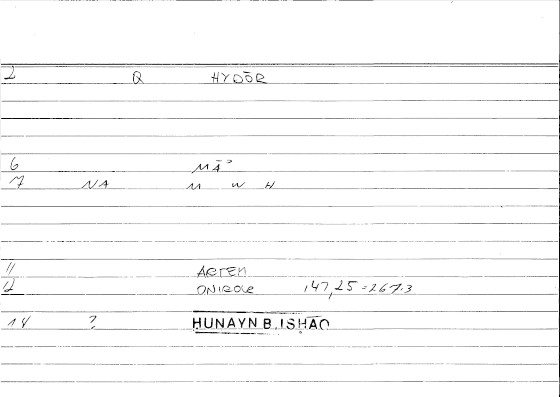 2 Q HYDŌR
6 MĀʾ
7 NA M W H
11 ARTEM
12 ONIROC 147,25=267.3
14 ? HUNAYN B. ISHĀQ